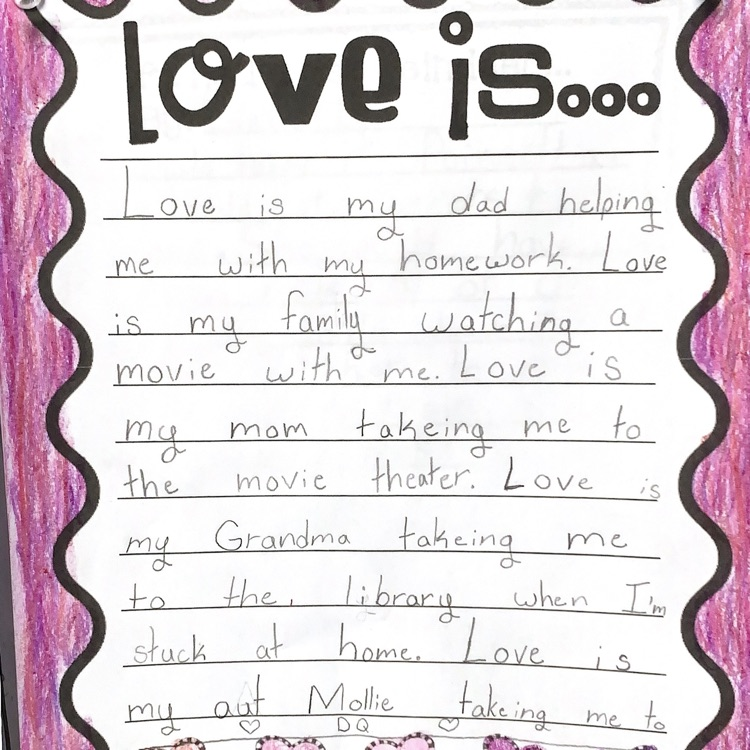 Love is...
Love is my dad helping
me with my homework. Love
is my family watching a
movie with me. Love is
my mom takeing me to
the movie theater. Love is
my Grandma takeing me
to the. library when I'm
stuck at home. Love is
my aut Mollie takeing me to
♡ DQ ♡